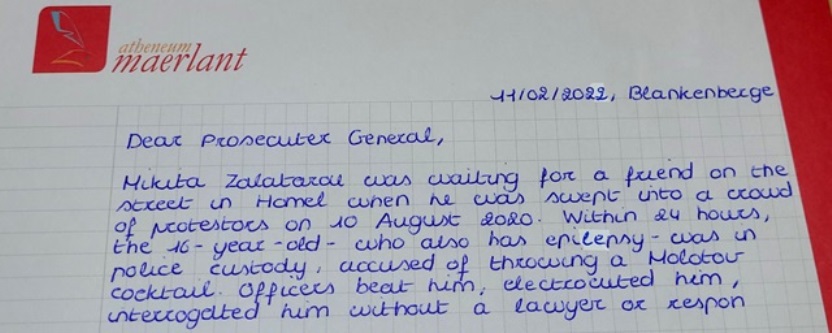 atheneum
maerlant
11/02/2022, Blankenberge
Dear Prosecuter General,
Mikita Zalatarou was waiting for a friend on the
street in Homel when he was swept into a crowd
of protestors on 10 August 2020. Within 24 hours,
the 16-year-old- who also has epilepsy- was in
police custody, accused of throwing a Molotov
cocktail. Officers beat him, electrocuted him,
interrogated him without a lawyer or respon